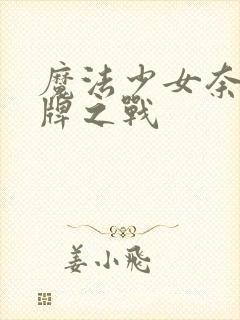 魔法少女奈
牌之戰
姜小飛